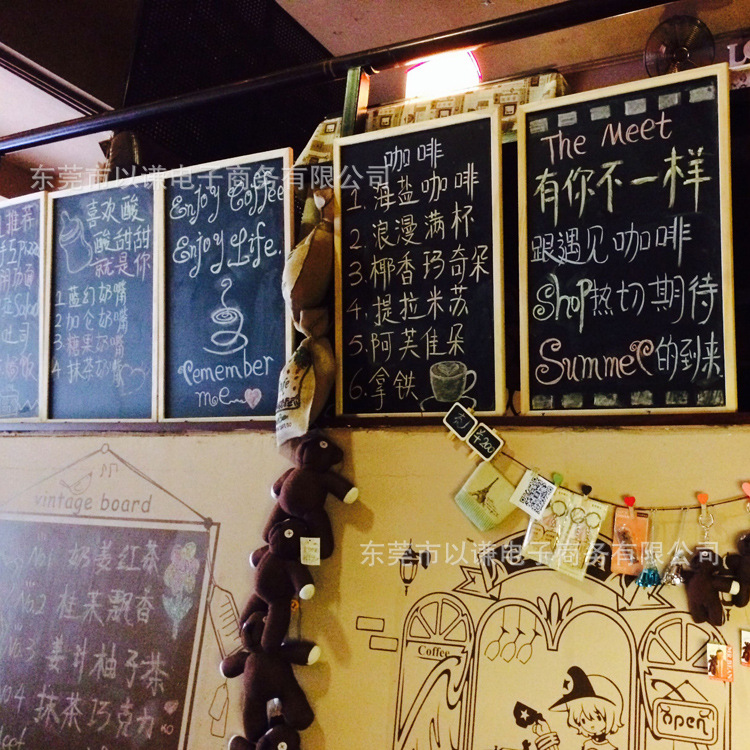 喜欢酸
酸甜甜
就是你
1 蓝幻奶嘴
2 加仑奶嘴
3 糖果奶嘴
4 抹茶奶嘴
Enjoy Coffee
Enjoy Life.
remember
me
咖啡
1. 海盐咖啡
2. 浪漫满杯
3. 椰香玛奇朵
4. 提拉米苏
5. 阿芙佳朵
6. 拿铁
The Meet
有你不一样
跟遇见咖啡
Shop热切期待
Summer的到来
东莞市以谦电子商务有限公司
礼
¥200
vintage board
No1 奶姜红茶
No2 桂茉飘香
No3 姜汁柚子茶
No4 抹茶巧克力
东莞市以谦电子商务有限公司
Coffee
open